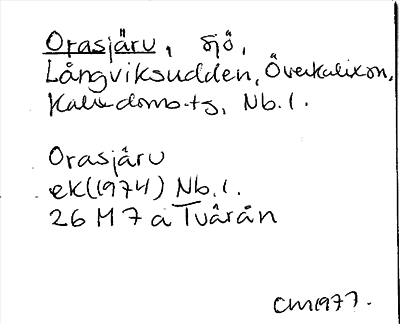 Orasjäru, sjö,
Långviksudden, Överkalixon,
Kalix doms.tg, Nb.l.
Orasjäru
ek(1974) Nb.l.
26 M 7 a Tvärån
CM1977.